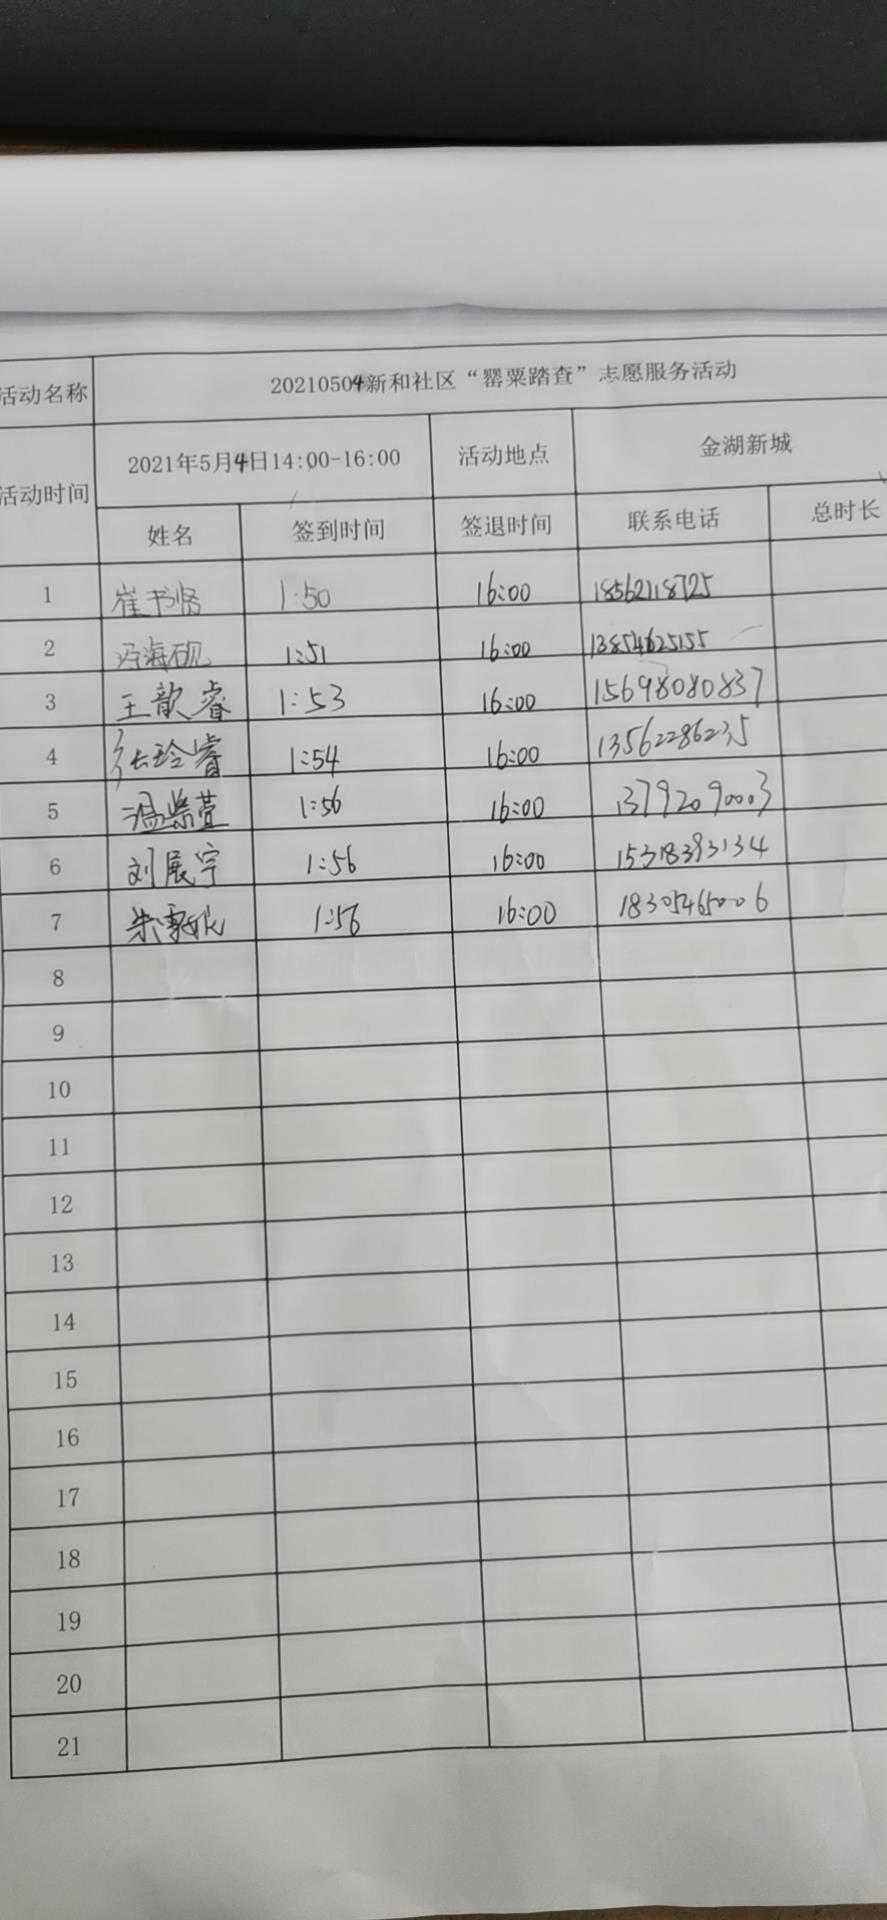 活动名称 20210504新和社区“罂粟踏查”志愿服务活动
活动时间 2021年5月4日14:00-16:00 活动地点 金湖新城
姓名 签到时间 签退时间 联系电话 总时长
1 崔书贤 1:50 16:00 18562118725
2 冯海砚 1:51 16:00 13854625155
3 王歆睿 1:53 16:00 15698080837
4 张玲睿 1:54 16:00 13562286235
5 温紫萱 1:56 16:00 13792090003
6 刘展宇 1:56 16:00 15318393134
7 1:56 16:00 18305465006
8
9
10
11
12
13
14
15
16
17
18
19
20
21